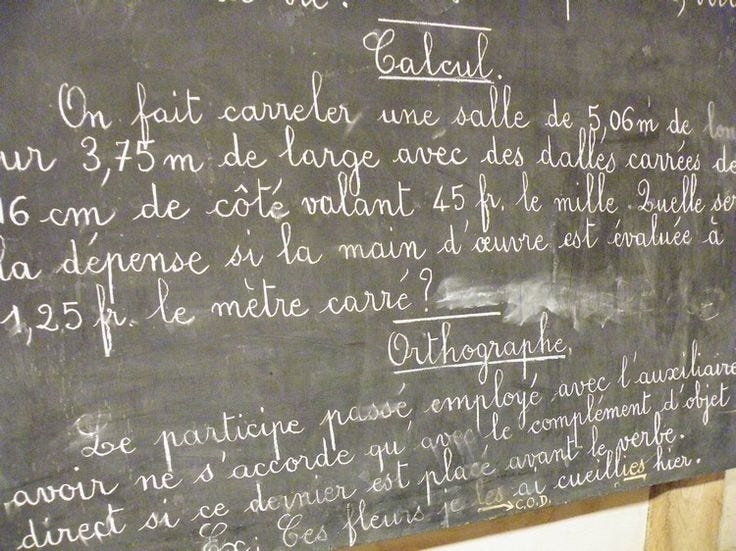 Calcul.
On fait carreler une salle de 5,06m de lon
ur 3,75m de large avec des dalles carrées de
16 cm de côté valant 45 fr. le mille. Quelle ser
la dépense si la main d'œuvre est évaluée à
1,25 fr. le mètre carré?
Orthographe.
Le participe passé employé avec l'auxiliaire
avoir ne s'accorde qu'avec le complément d'objet
direct si ce dernier est placé avant le verbe.
Ex: Ces fleurs je les ai cueillies hier.
C.O.D.